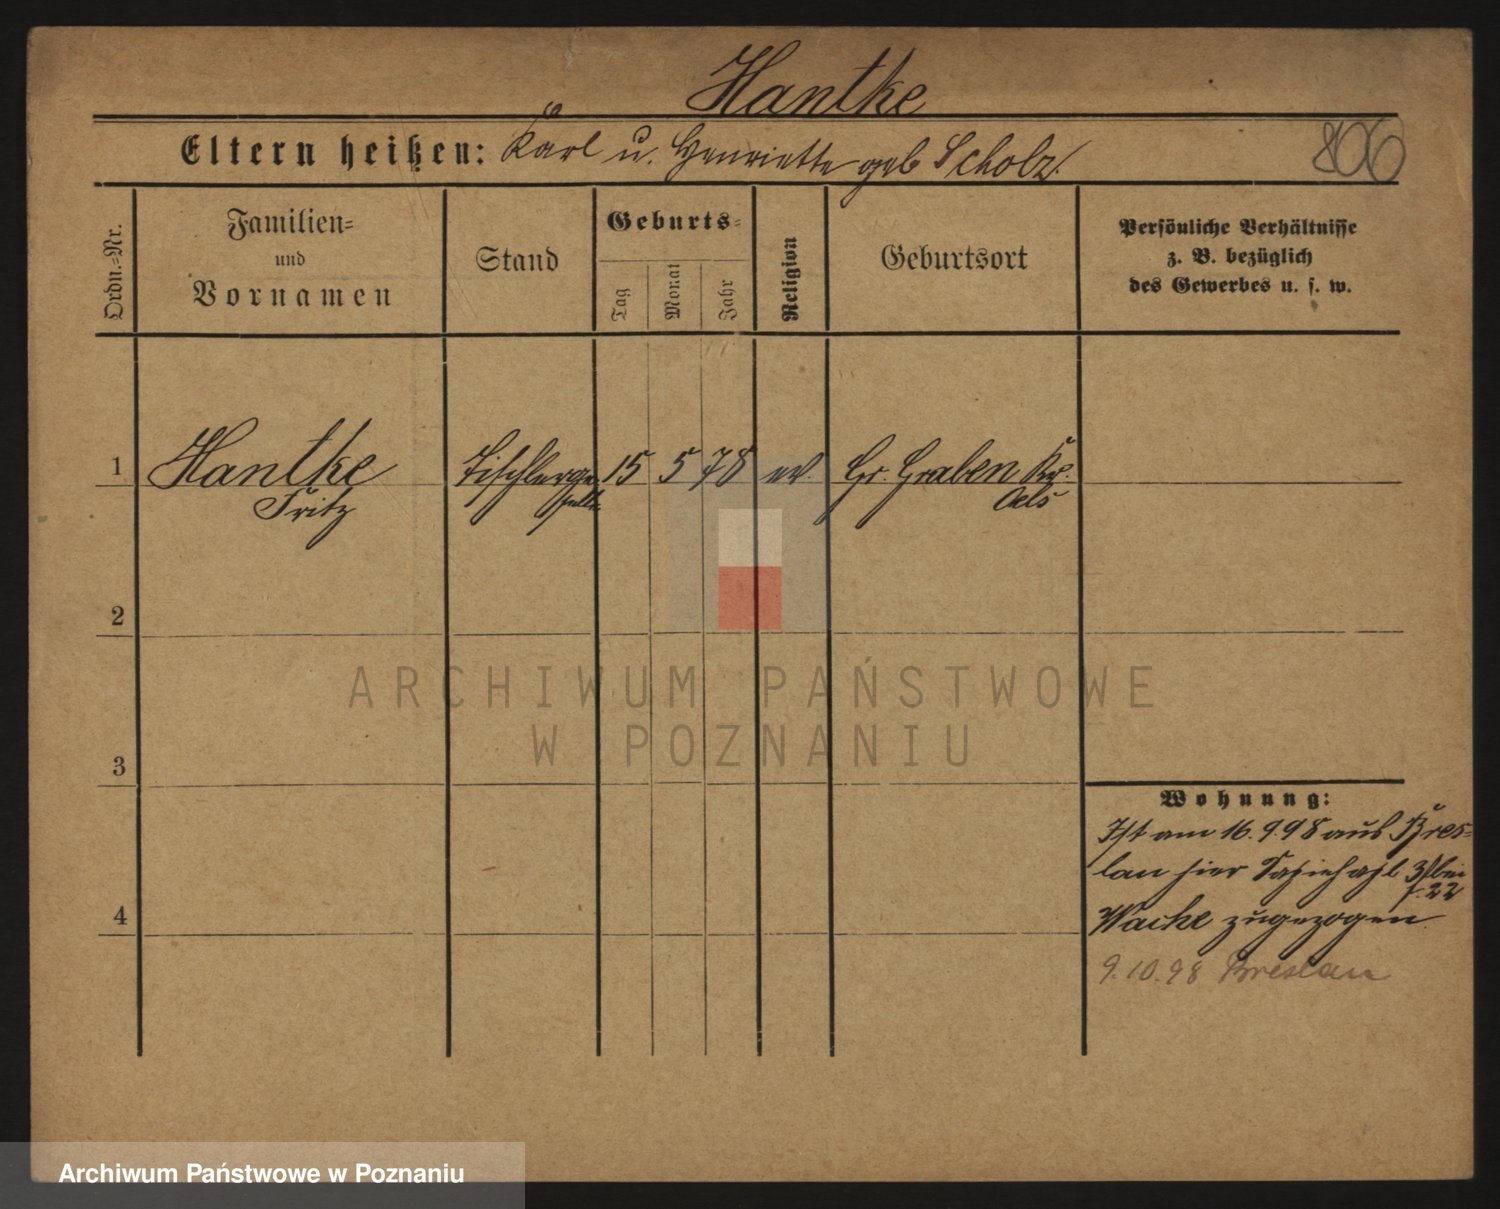 Hantke
Eltern heißen: Karl u. Henriette geb Scholz.
806
Ordn.=Nr.
Familien=
und
Vornamen
Stand
Geburts=
Tag
Monat
Jahr
Religion
Geburtsort
Persönliche Verhältnisse
z. B. bezüglich
des Gewerbes u. s. w.
1 Hantke Tischlerge- 15 5 78 ev. Gr. Graben Kr.
Fritz selle Oels
2
3
4
Wohnung:
Ist am 16.9 98 aus Bres=
lau hier 3/ bei
f. 22
Wache zugezogen
9.10.98 Breslau
ARCHIWUM PAŃSTWOWE
W POZNANIU
Archiwum Państwowe w Poznaniu